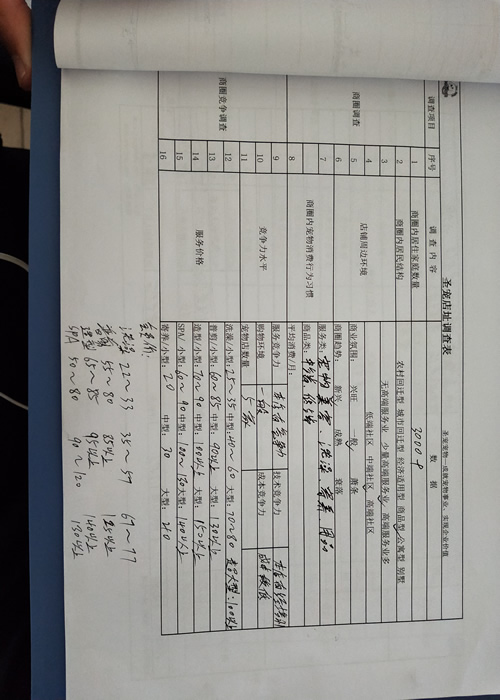 圣宠店址调查表
圣宠宠物—成就宠物事业，实现企业价值
调查项目 序号 调查内容 数据
商圈调查
1 商圈内居住家庭数量 3000户
2 商圈内居民结构 农村回迁型 城市回迁型 经济适用型 商品型 公寓型 别墅
3 无高端服务业 少量高端服务业 高端服务业多
4 店铺周边环境 低端社区 中端社区 高端社区
5 商业氛围： 兴旺 一般 萧条
6 商圈趋势： 新兴 成熟 衰落
7 商圈内宠物消费行为习惯 服务类：宠物美容、洗澡、寄养、用品
商品类：
8 平均消费/月：
商圈竞争调查
9 竞争力水平 服务竞争力 技术竞争力
10 购物环境 一般 成本竞争力 成本较低
11 宠物店数量
12 服务价格 洗澡/小型：25~35 中型：40~60 大型：70~80 超大型：100以上
13 剪剪/小型：60~85 中型：90以上 大型：130以上
14 造型/小型：70~90 中型：100以上 大型：150以上
15 SPA/小型：60~90 中型：100~130 大型：140以上
16 寄养/小型：20 中型：30 大型：40
洗澡 22~33 35~57 67~77
55~80 85以上 125以上
造型 65~85 95以上 140以上
SPA 50~80 90~120 130以上